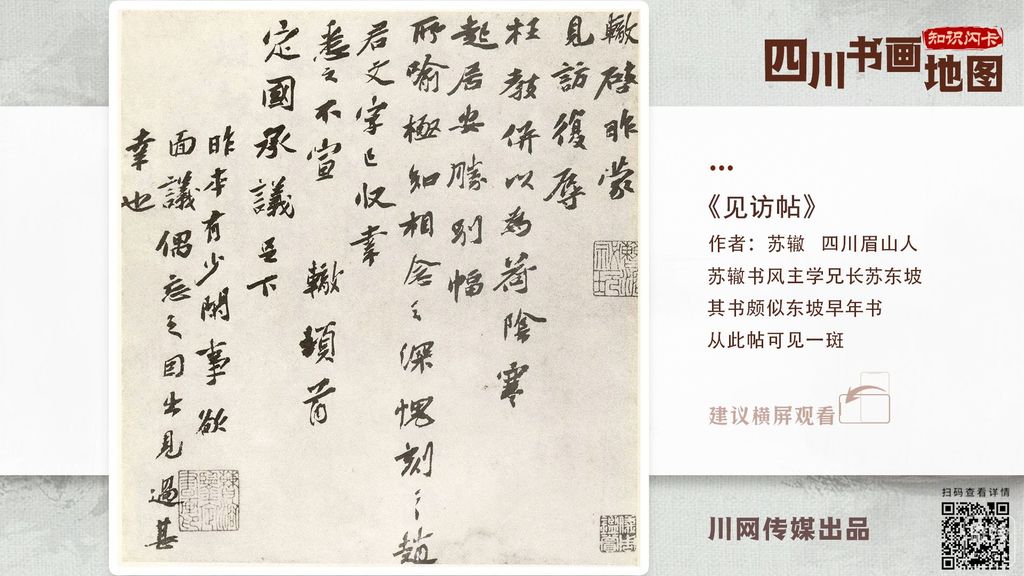 轍啓昨蒙
見訪復辱
枉教併以為荷陰寒
起居安勝別幅
所喻極知相念之深愧刻々趙
君文字已收索
悉之不宣 轍頓首
定國承議足下
昨本有少閑事欲
面議偶忘之因出見過甚
幸也
四川书画地图
知识闪卡
《见访帖》
作者：苏辙 四川眉山人
苏辙书风主学兄长苏东坡
其书颇似东坡早年书
从此帖可见一斑
建议横屏观看
川网传媒出品
扫码查看详情